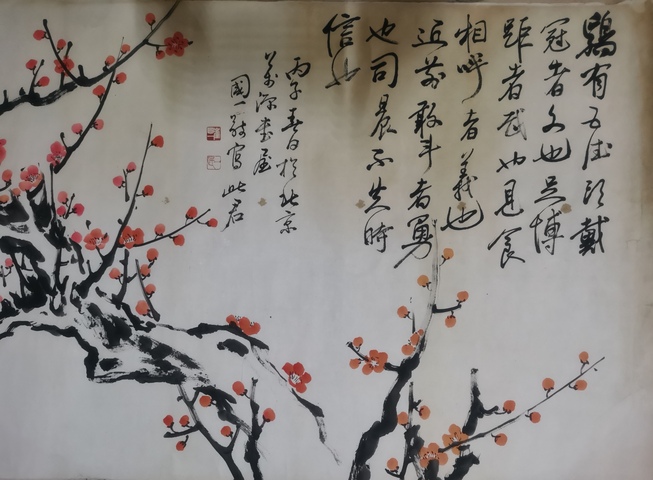 鷄有五德頭戴
冠者文也足搏
距者武也見食
相呼者義也
近前敢斗者勇
也司晨不失時
信也
丙子春日於北京
萬源書屋
國一寫此君